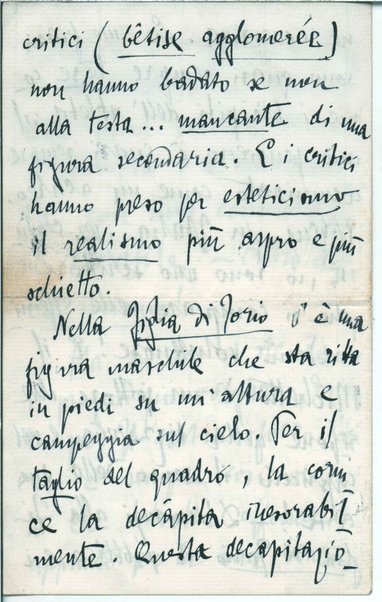 critici (bêtise agglomerée)
non hanno badato se non
alla testa... mancante di una
figura secondaria. E i critici
hanno preso per esteticismo
il realismo più aspro e più
schietto.
Nella Figlia di Jorio v'è una
figura maschile che sta ritta
in piedi su un'altura e
campeggia sul cielo. Per il
taglio del quadro, la corni
ce la decàpita inesorabil
mente. Questa decapitazio